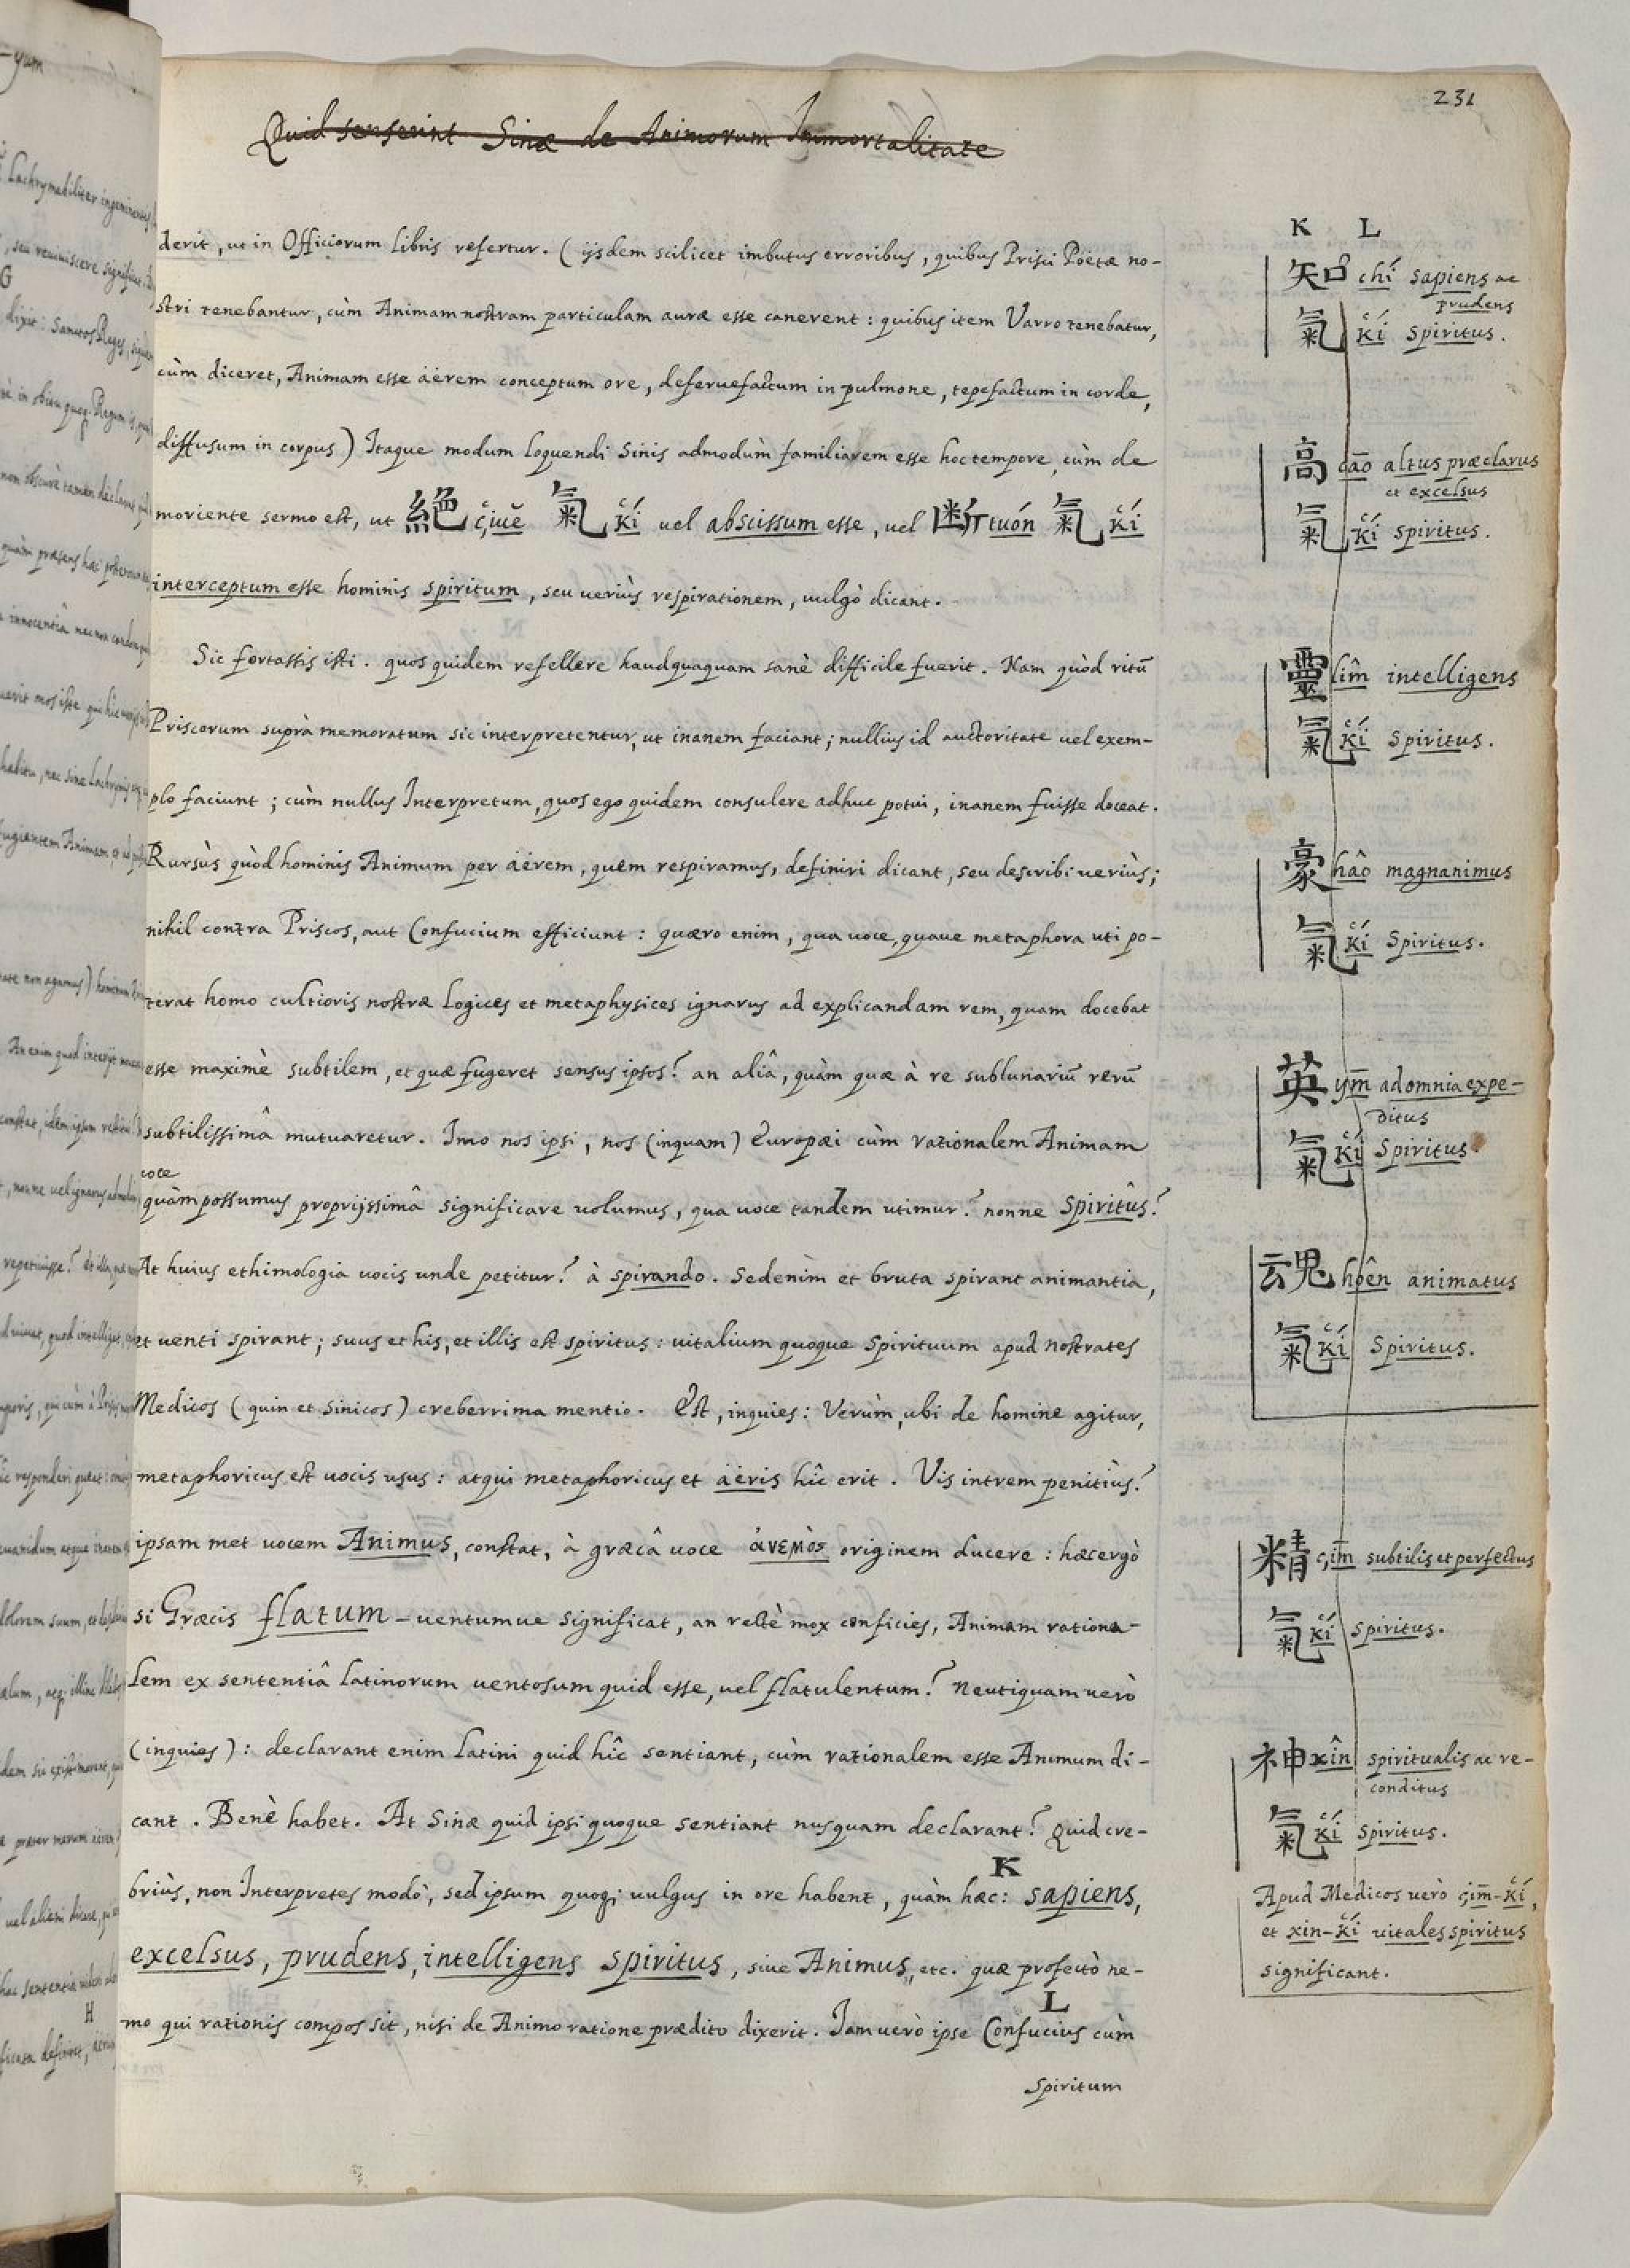 231
Quid senserint Sinæ de Animorum Immortalitate
derit, ut in Officiorum libris refertur. (ijsdem scilicet imbutus erroribus, quibus Prisci Poëtæ no-
stri tenebantur, cùm Animam nostram particulam auræ esse canerent: quibus item Varro tenebatur,
cùm diceret, Animam esse äërem conceptum ore, deferuefactum in pulmone, tepefactum in corde,
diffusum in corpus) Itaque modum loquendi Sinis admodùm familiarem esse hoc tempore, cùm de
moriente sermo est, ut 絕 çiuĕ 氣 kí uel abscissum esse, uel 断 tuón 氣 kí
interceptum esse hominis spiritum, seu ueriùs respirationem, uulgò dicant.
Sic fortassis isti. quos quidem refellere haudquaquam sanè difficile fuerit. Nam quòd ritū
Priscorum suprà memoratum sic interpretentur, ut inanem faciant; nullius id auctoritate uel exem-
plo faciunt; cùm nullus Interpretum, quos ego quidem consulere adhuc potui, inanem fuisse doceat.
Rursùs quòd hominis Animum per äërem, quem respiramus, definiri dicant, seu describi ueriùs;
nihil contra Priscos, aut Confucium efficiunt: quæro enim, qua uoce, quaue metaphora uti po-
terat homo cultioris nostræ logices et metaphysices ignarus ad explicandam rem, quam docebat
esse maximè subtilem, et quæ fugeret sensus ipsos? an aliâ, quàm quæ à re sublunariū rerū
subtilissimâ mutuaretur. Imo nos ipsi, nos (inquam) Europæi cùm rationalem Animam
uoce
quàm possumus proprijssimâ significare uolumus, qua uoce tandem utimur? nonne Spiritûs?
At huius ethimologia uocis unde petitur? à spirando. Sedenim et bruta spirant animantia,
et uenti spirant; suus et his, et illis est spiritus: uitalium quoque Spirituum apud nostrates
Medicos (quin et Sinicos) creberrima mentio. Est, inquies: Verùm, ubi de homine agitur,
metaphoricus est uocis usus: atqui metaphoricus et äëris hîc erit. Vis intrem penitiùs?
ipsam met uocem Animus, constat, à græcâ uoce ἀνεμὸς originem ducere: hæc ergò
si Græcis flatum-uentumue significat, an rectè mox conficies, Animam rationa-
lem ex sententiâ Latinorum uentosum quid esse, uel flatulentum? Neutiquam uerò
(inquies): declarant enim Latini quid hîc sentiant, cùm rationalem esse Animum di-
cant. Benè habet. At Sinæ quid ipsi quoque sentiant nusquam declarant? Quid cre-
K
briùs, non Interpretes modò, sed ipsum quoq; uulgus in ore habent, quàm hæc: sapiens,
excelsus, prudens, intelligens spiritus, siue Animus, etc. quæ profectò ne-
L
mo qui rationis compos sit, nisi de Animo ratione prædito dixerit. Iam uerò ipse Confucius cùm
Spiritum
K L
知 chí sapiens ac
prudens
氣 kí Spiritus.
高 cāo altus præclarus
et excelsus
氣 kí Spiritus.
靈 lîm intelligens
氣 kí Spiritus.
豪 hâo magnanimus
氣 kí Spiritus.
英 ym̄ ad omnia expe-
ditus
氣 kí Spiritus
魂 hoên animatus
氣 kí Spiritus.
精 çim̄ subtilis et perfectus
氣 kí Spiritus.
神 xîn spiritualis ac re-
conditus
氣 kí Spiritus.
Apud Medicos uerò çim̄-kí,
et xin-kí uitales spiritus
significant.